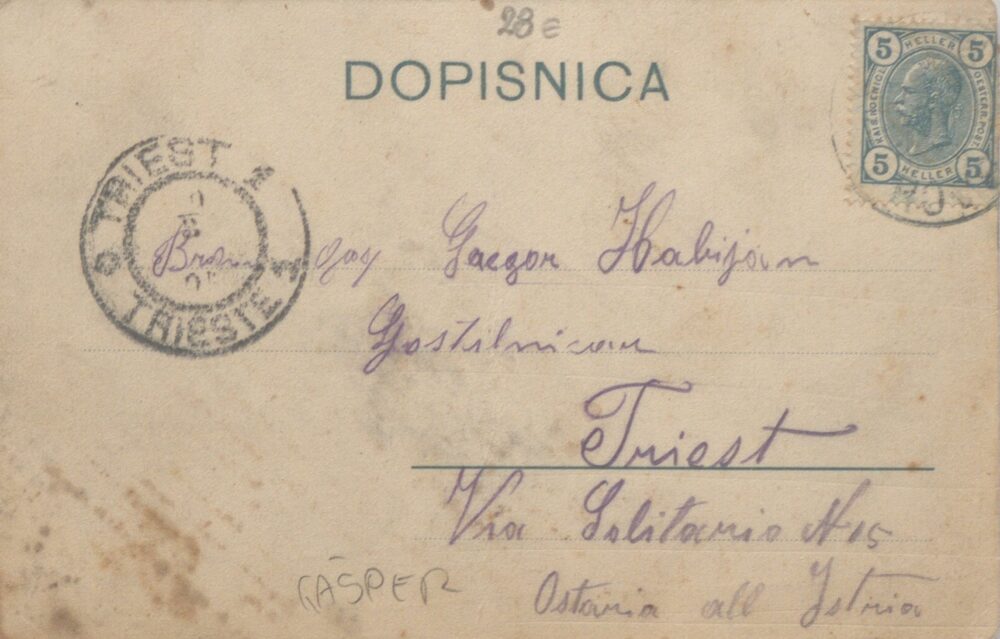 28 €
DOPISNICA
5 HELLER 5
KAIS. KOENIGL. OESTERR. POST
5 HELLER 5
TRIEST 2
TRIESTE 2
Gregor Habijan
Gostilničar
Triest
Via Solitario N 15
Ostaria all Istria
GAŠPER